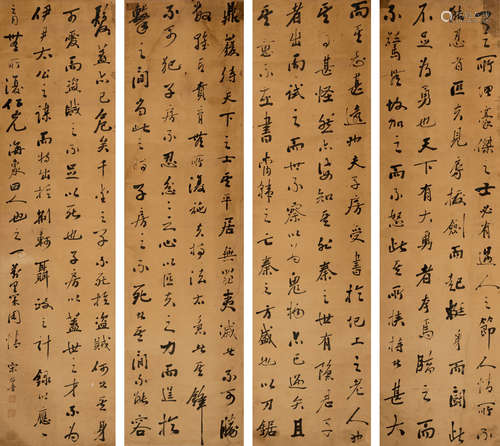 之所謂豪傑之士必有過人之節人情有所不
能忍者匹夫見辱拔劍而起挺身而鬥此
不足為勇也天下有大勇者卒然臨之而
不驚無故加之而不怒此其所挾持者甚大
而其志甚遠也夫子房受書於圯上之老人也
其事甚怪然亦安知其非秦之世有隱君子
者出而試之而世不察以為鬼物亦已過矣且
其意不在書當韓之亡秦之方盛也以刀鋸
鼎鑊待天下之士其平居無罪夷滅者不可勝
數雖有賁育無所復施夫持法太急者其鋒
不可犯子房不忍忿忿之心以匹夫之力而逞於
擊之間當此之時子房之不死者其間不能容
髮蓋亦已危矣千金之子不死於盜賊何者其身
可愛而盜賊之不足以死也子房以蓋世之才不為
伊尹太公之謀而特出於荊軻聶政之計錄以應
仁兄